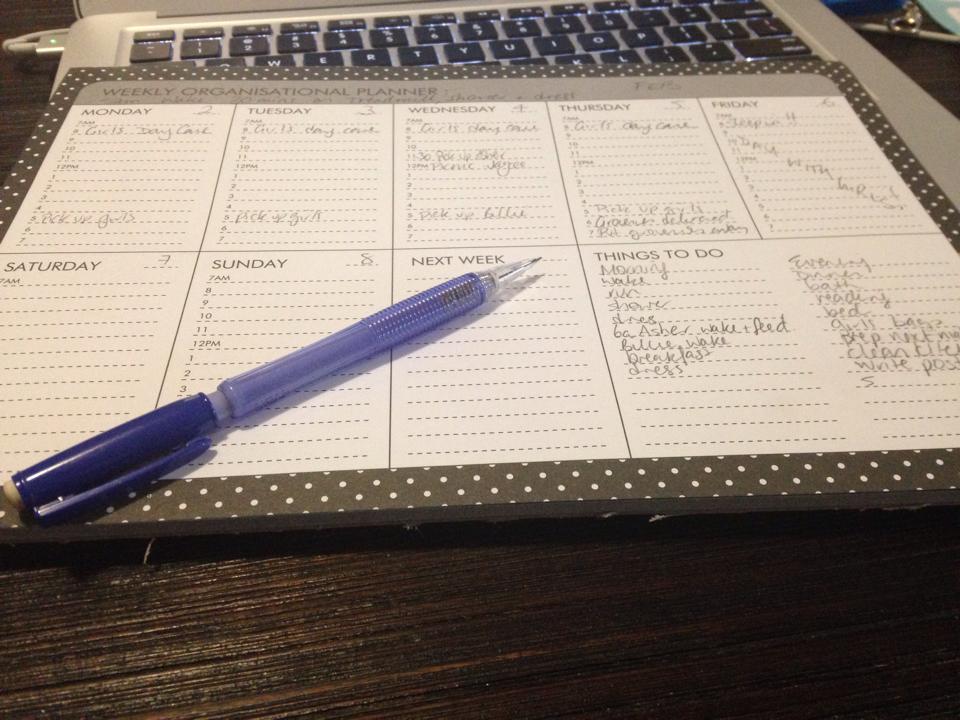 WEEKLY ORGANISATIONAL PLANNER :
FEB
wake 30 mins on Treadmill shower + dress
MONDAY 2
7AM
8 Girls Day Care
9
10
11
12PM
1
2
3
4
5 Pick up girls
6
7
TUESDAY 3
7AM
8 Girls day care
9
10
11
12PM
1
2
3
4
5 Pick up girls
6
7
WEDNESDAY 4
7AM
8 Girls day care
9
10
11.30 Pick up Asher
12PM Picnic
1
2
3
4
5 Pick up Billie
6
7
THURSDAY 5
7AM
8 Girls day care
9
10
11
12PM
1
2
3
4
5 Pick up girls
6 Groceries delivered
7 Put groceries away
FRIDAY 6
7AM
8 Sleep in!!
9
10
11
12PM
DAY WITH
1
2
3
4
5
6
7
SATURDAY 7
7AM
SUNDAY 8
7AM
8
9
10
11
12PM
1
2
3
NEXT WEEK
THINGS TO DO
Morning
wake
run
shower
dress
6a Asher wake + feed
Billie wake
breakfast
dress
Evening
Dinner
bath
reading
bed
girls bags
prep next
clean
write
S
W E R T Y U I O P